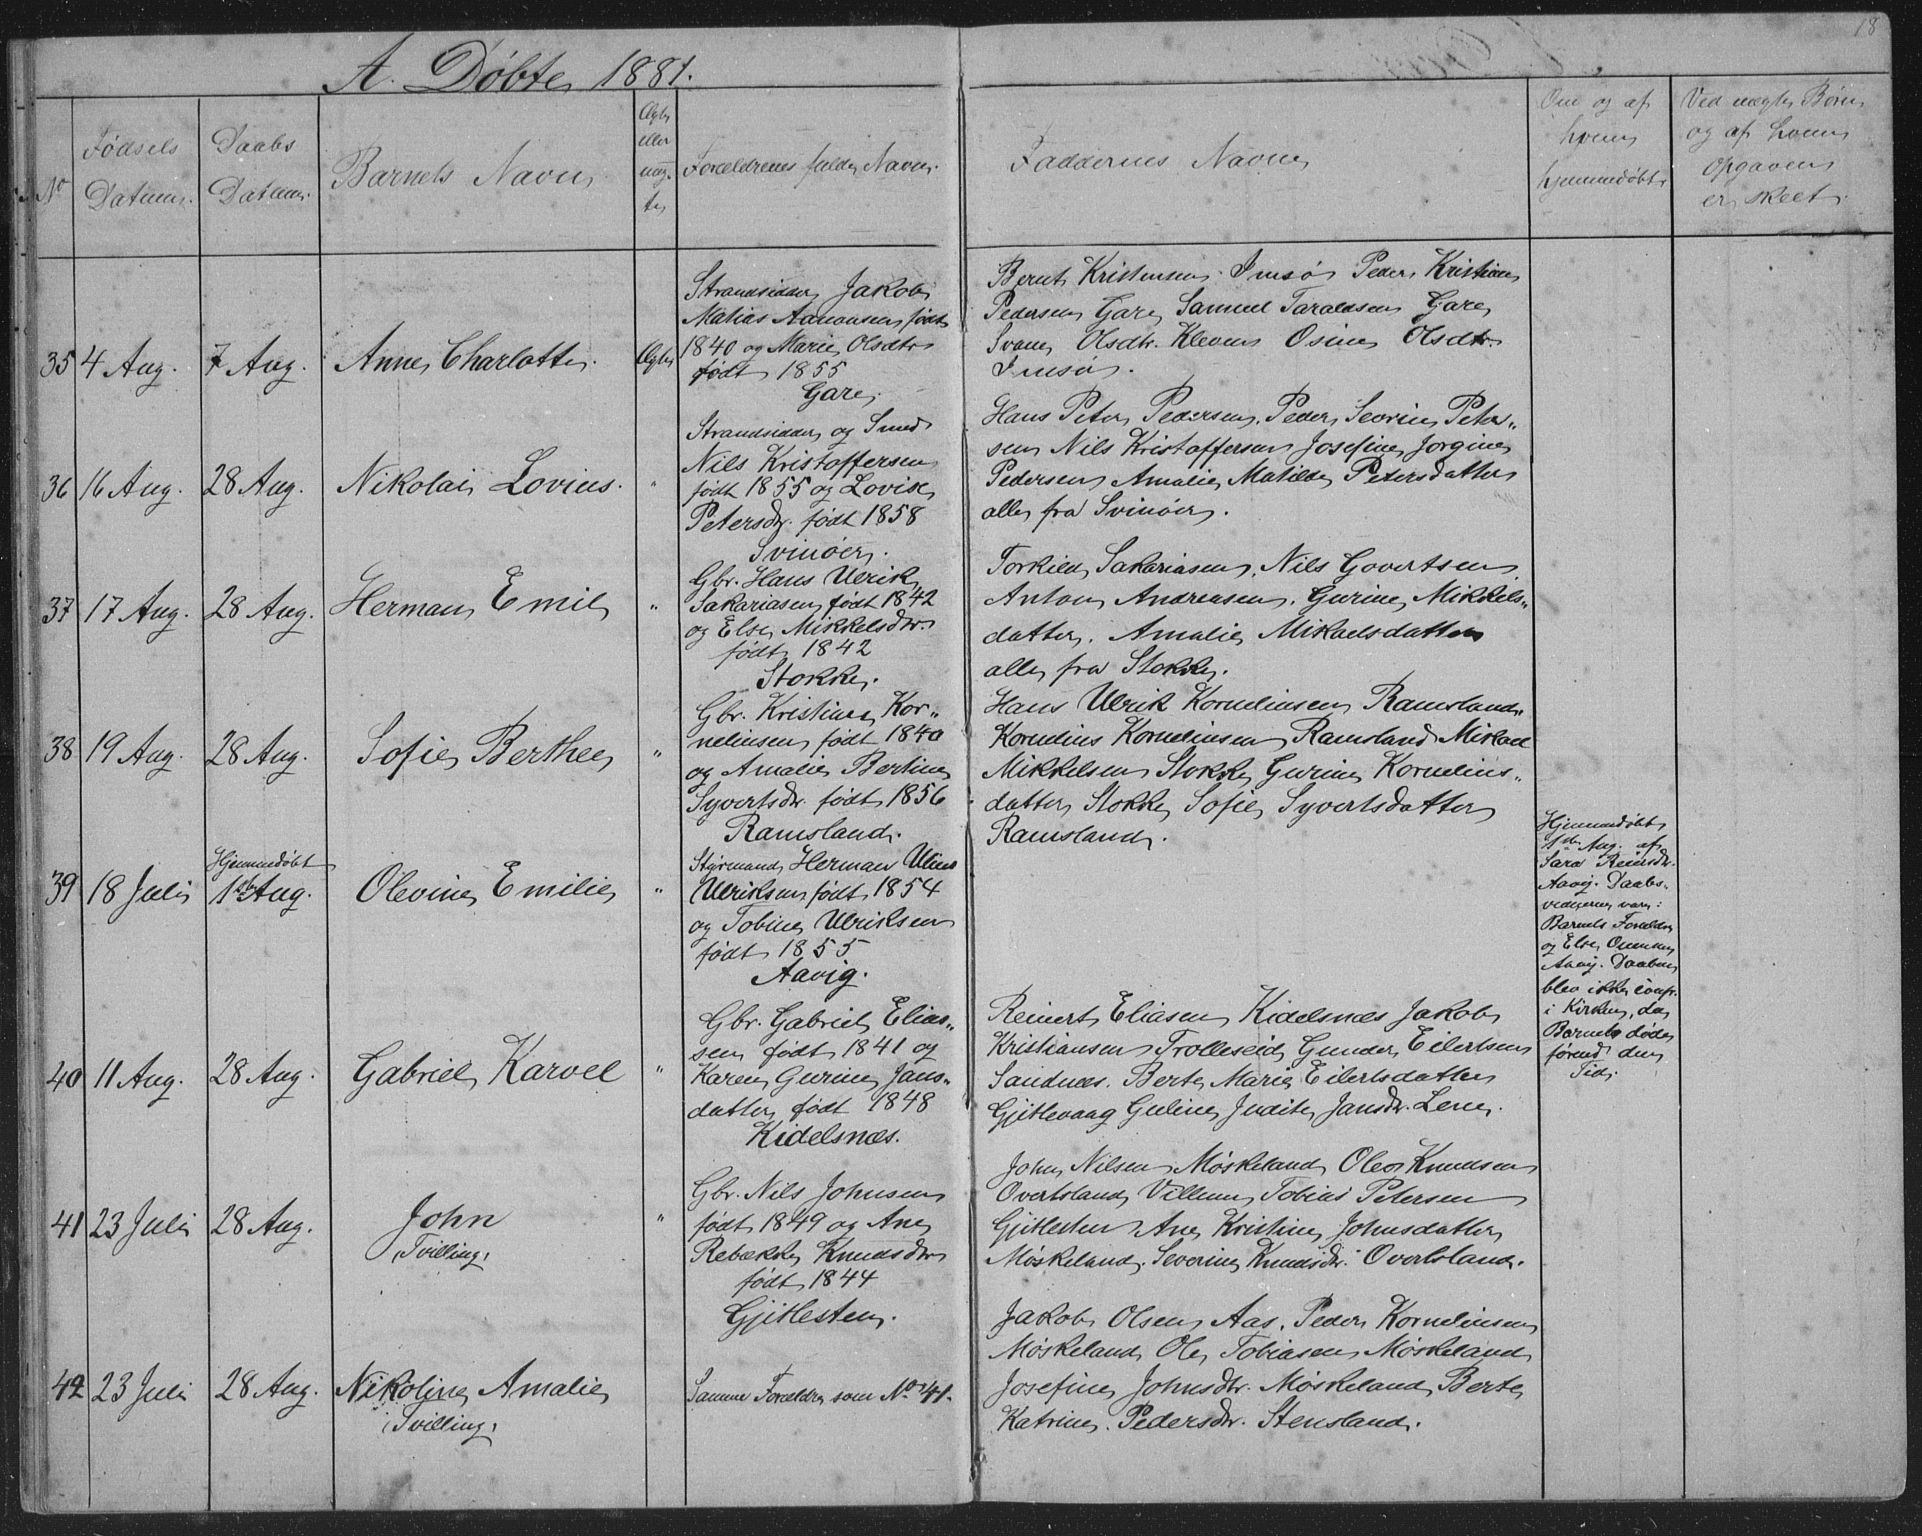 18
A. Døbte 1881.
No
Fødsels Datum.
Daabs Datum.
Barnets Navn.
Ægte eller uæg- te
Forældrenes fulde Navne.
Faddernes Navne
Om og af hvem hjemmedøbt
Ved uægte Børn og af hvem Opgaven er skeet.
35 4 Aug. 7 Aug. Anne Charlotte. Ægte
Strandsidder Jakob
Matias Aanonsen født
1840 og Marie Olsdtr
født 1855
Gare.
Bernt Kristensen Imsø Peder Kristian
Pedersen Gare Samuel Taraldsen Gare
Svane Olsdtr. Kleven Osine Olsdtr.
Imsø.
36 16 Aug. 28 Aug. Nikolai Lovius. "
Strandsidder og Smed
Nils Kristoffersen
født 1855 og Lovise
Petersdr. født 1858
Svinøer.
Hans Peter Pedersen. Peder Severin Peter„
sen Nils Kristoffersen Josefine Jorgine
Pedersen Amalie Matilde Petersdatter
alle fra Svinøer.
37 17 Aug. 28 Aug. Herman Emil "
Gbr. Hans Ulrik
Sakariasen født 1842
og Else Mikkelsdtr.
født 1842
Stokke.
Torkild Sakariasen, Nils Govertsen
Anton Andreasen. Gurine Mikkels„
datter. Amalie Mikaelsdatter
alle fra Stokke.
38 19 Aug. 28 Aug. Sofie Berthee "
Gbr. Kristian Kor„
neliusen født 1840
og Amalie Bertine
Syvertsdr. født 1856
Ramsland.
Hans Ulrik Korneliusen Ramsland„
Kornelius Korneliusen Ramsland Mikael
Mikkelsen Stokke Gurine Kornelius„
datter Stokke Sofie Syvertsdatter
Ramsland.
39 18 Juli Hjemmedøbt 1ste Aug. Olevine Emilie "
Styrmand Herman Ulrius
Ulriksen født 1854
og Tobine Ulriksen
født 1855
Aavig.
Hjemmedøbt
1ste Aug. af
Sara Reinsdr.
Aavig. Daabs-
vidnerne vare:
Barnets Forældre
og Else Omensen
Aavig. Daaben
blev ikke conf.
i Kirken, da
Barnet døde
forend den
Tid.
40 11 Aug. 28 Aug. Gabriel Karvel "
Gbr. Gabriel Elias„
sen født 1841 og
Karen Gurine Jans„
datter født 1848
Kidelsnæs.
Reinert Eliasen Kidelsnæs Jakob
Kristiansen Trolleseid Gunder Eilertsen
Sandnæs. Berte Marie Eilertsdatter
Gjitlevaag Guline Judite Jansdr. Lene.
41 23 Juli 28 Aug. John "
Tvilling.
Gbr. Nils Johnsen
født 1849 og Ane
Rebække Knudsdtr
født 1844
Gjitlesten.
John Nilsen Møskeland Oleos Knudsen
Overtsland Villum Tobias Petersen
Gjitlesten Ane Kristine Johnsdatter
Møskeland. Severine Knudsdr. Overtsland.
42 23 Juli 28 Aug. Nikoline Amalie
Tvilling.
Samme Forældre som No 41.
Jakob Olsen Aas. Peder Korneliusen
Møskeland Ole Tobiasen Møskeland
Josefine Johnsdtr. Møskeland Berte
Katrine Pedersdr. Stensland.